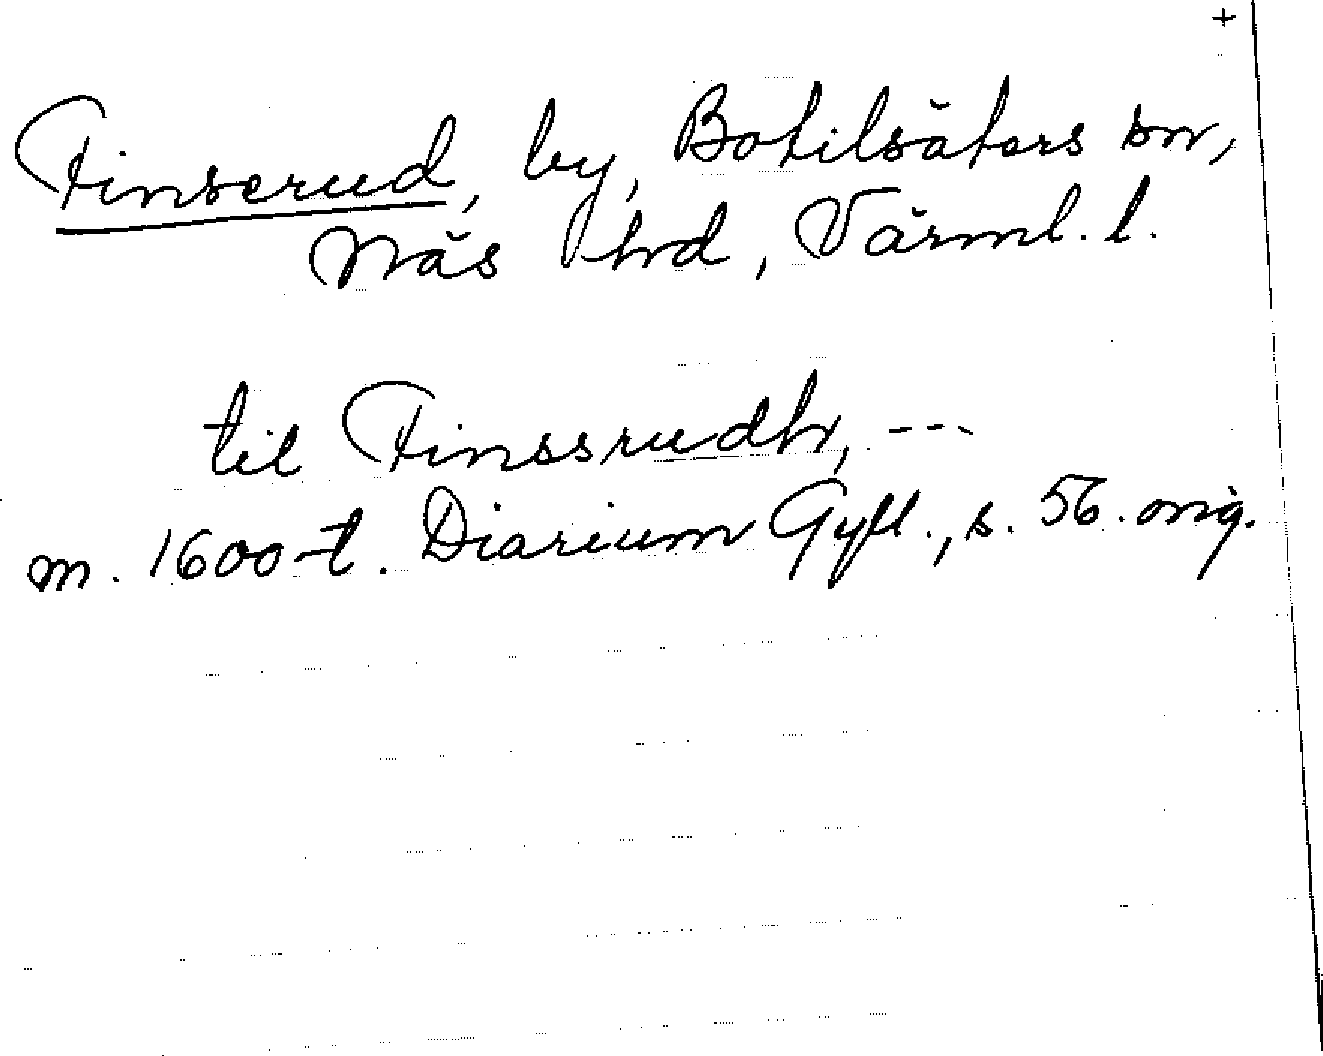 +
Finserud, by, Botilsäters sn,
Näs hd, Värml. l.
til Finssrudh, ---
m. 1600-t. Diarium Gyll., s. 56. orig.